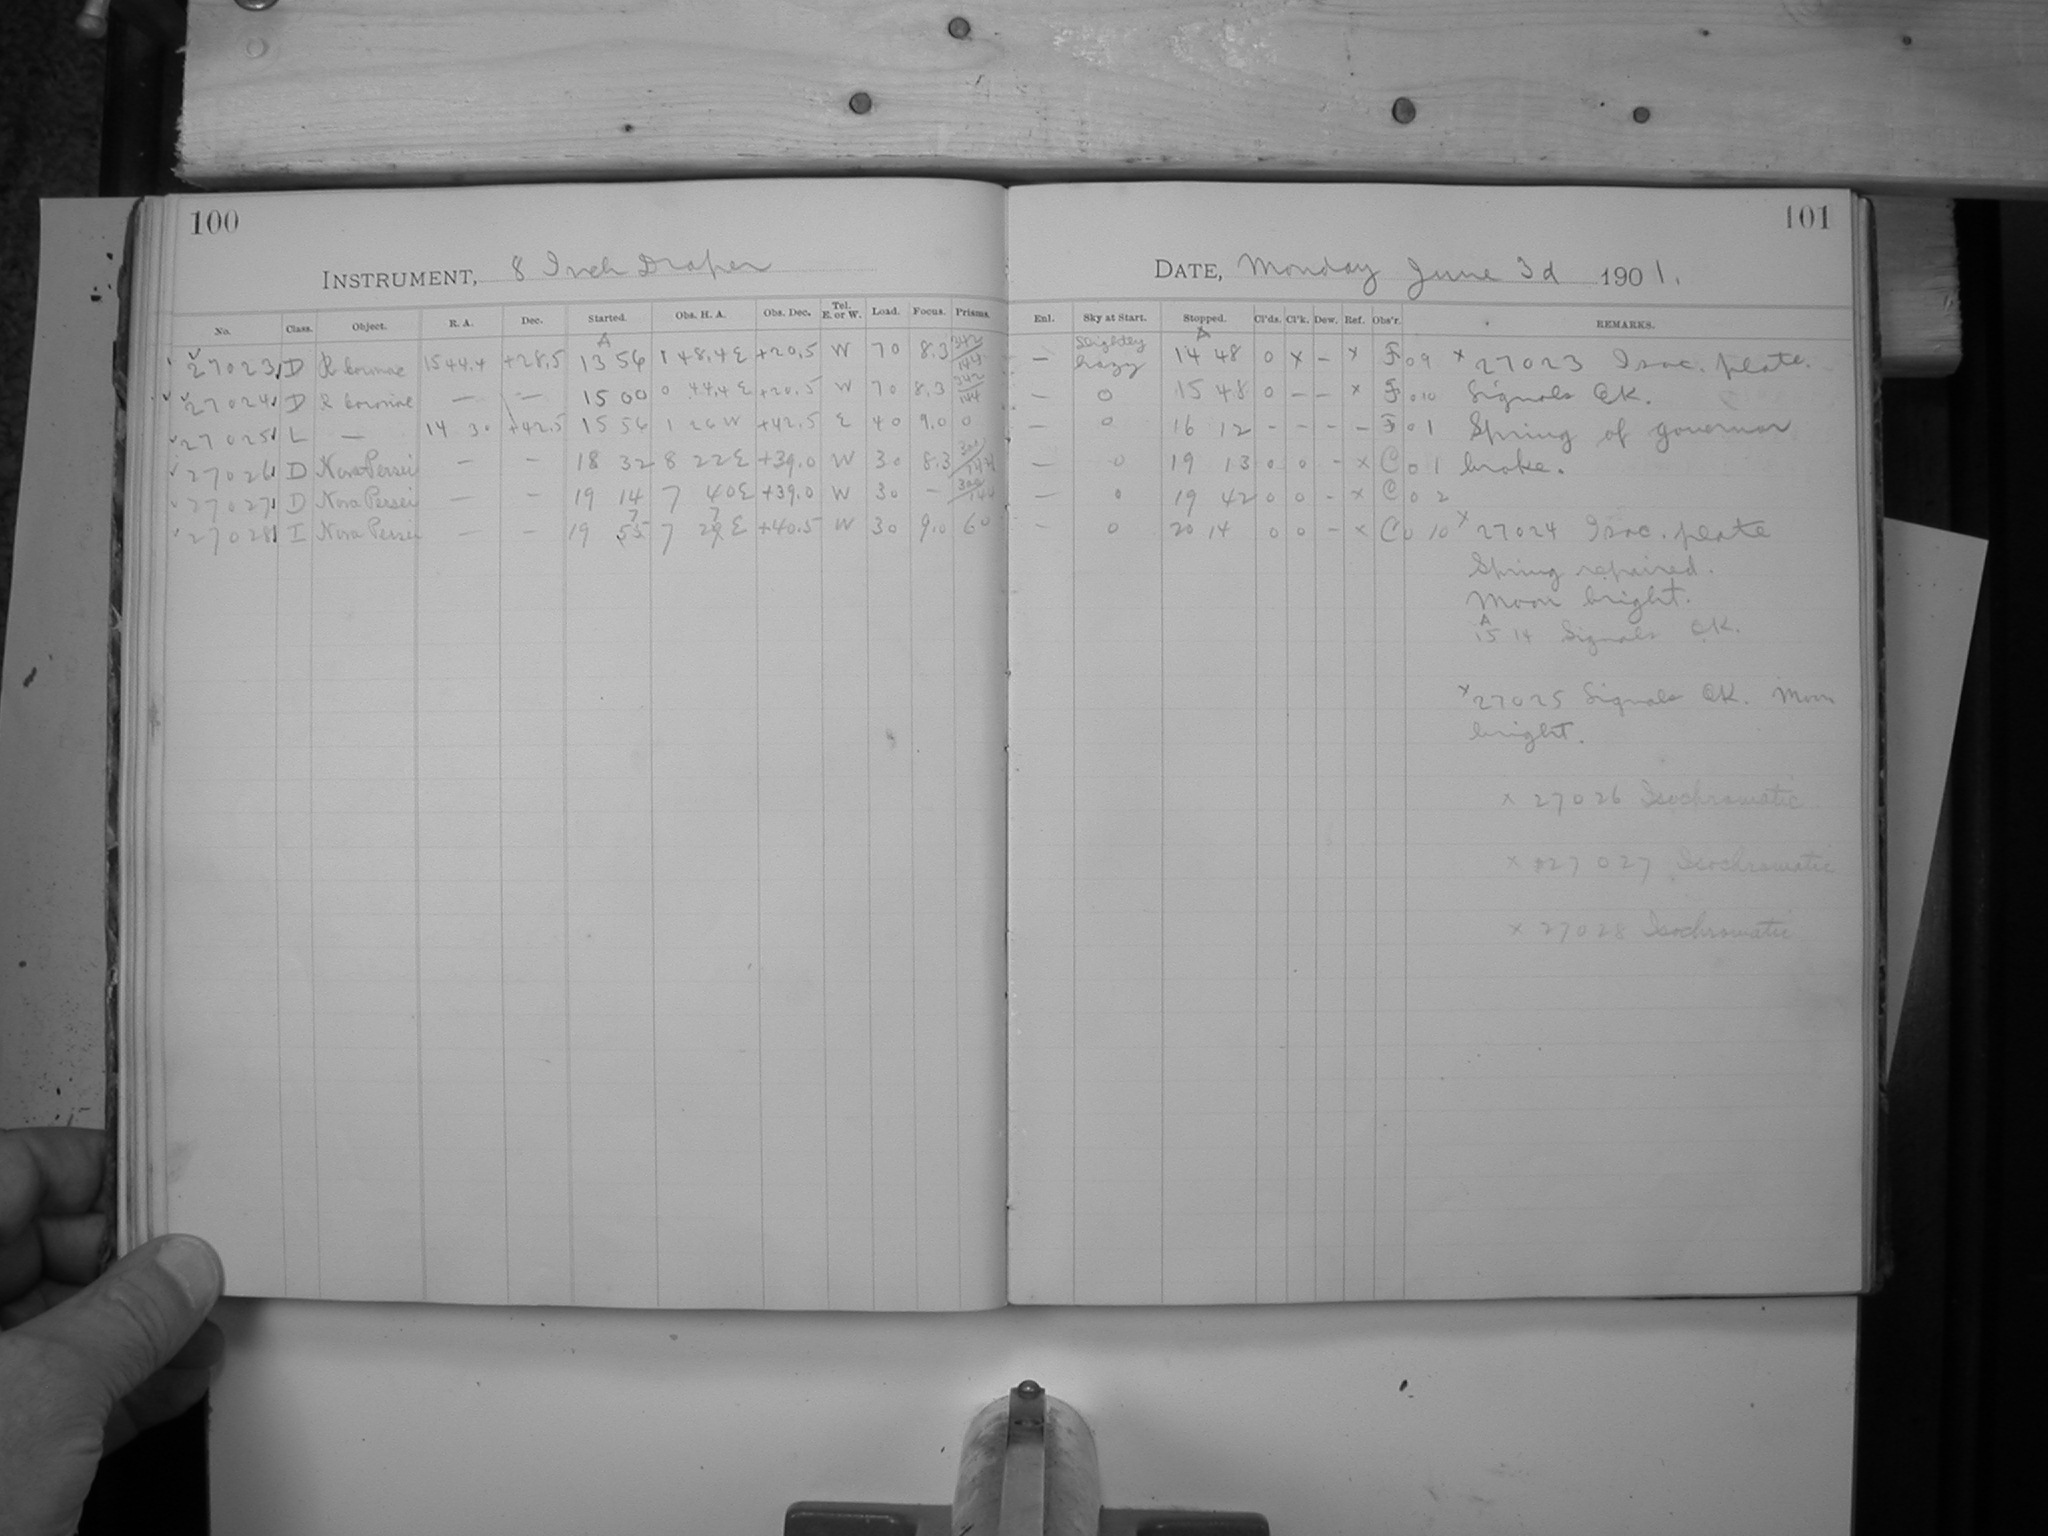 100
101
INSTRUMENT, 8 Inch Draper
DATE, Monday June 3d 1901.
No. Class. Object. R. A. Dec. Started. Obs. H. A. Obs. Dec. Tel. E. or W. Load. Focus. Prisms. Enl. Sky at Start. Stopped. Cl'ds. Cl'k. Dew. Ref. Obs'r. REMARKS.
A Slightly A
27023 D R Coronae 15 44.4 +28.5 13 56 1 48.4 E +20.5 W 70 8.3 342/144 — hazy 14 48 0 x – x F 09 x 27023 Isoc. plate.
27024 D R Coronae — — 15 00 0 44.4 E +20.5 W 70 8.3 342/144 — 0 15 48 0 – – x F 010 Signals OK.
27025 L — 14 30 +42.5 15 56 1 26 W +42.5 E 40 9.0 0 — 0 16 12 – – – – F 01 Spring of governor
27026 D Nova Persei — — 18 32 8 22 E +39.0 W 30 8.3 300/144 — 0 19 13 0 0 – x C 01 broke.
27027 D Nova Persei — — 19 14 7 40 E +39.0 W 30 – 300/144 — 0 19 42 0 0 – x C 02
27028 I Nova Persei — — 19 55 7 29 E +40.5 W 30 9.0 60 — 0 20 14 0 0 – x C 010 x 27024 Isoc. plate
Spring repaired.
Moon bright.
A
15 14 Signals OK.
x 27025 Signals OK. Moon
bright.
x 27026 Isochromatic
x 27027 Isochromatic
x 27028 Isochromatic